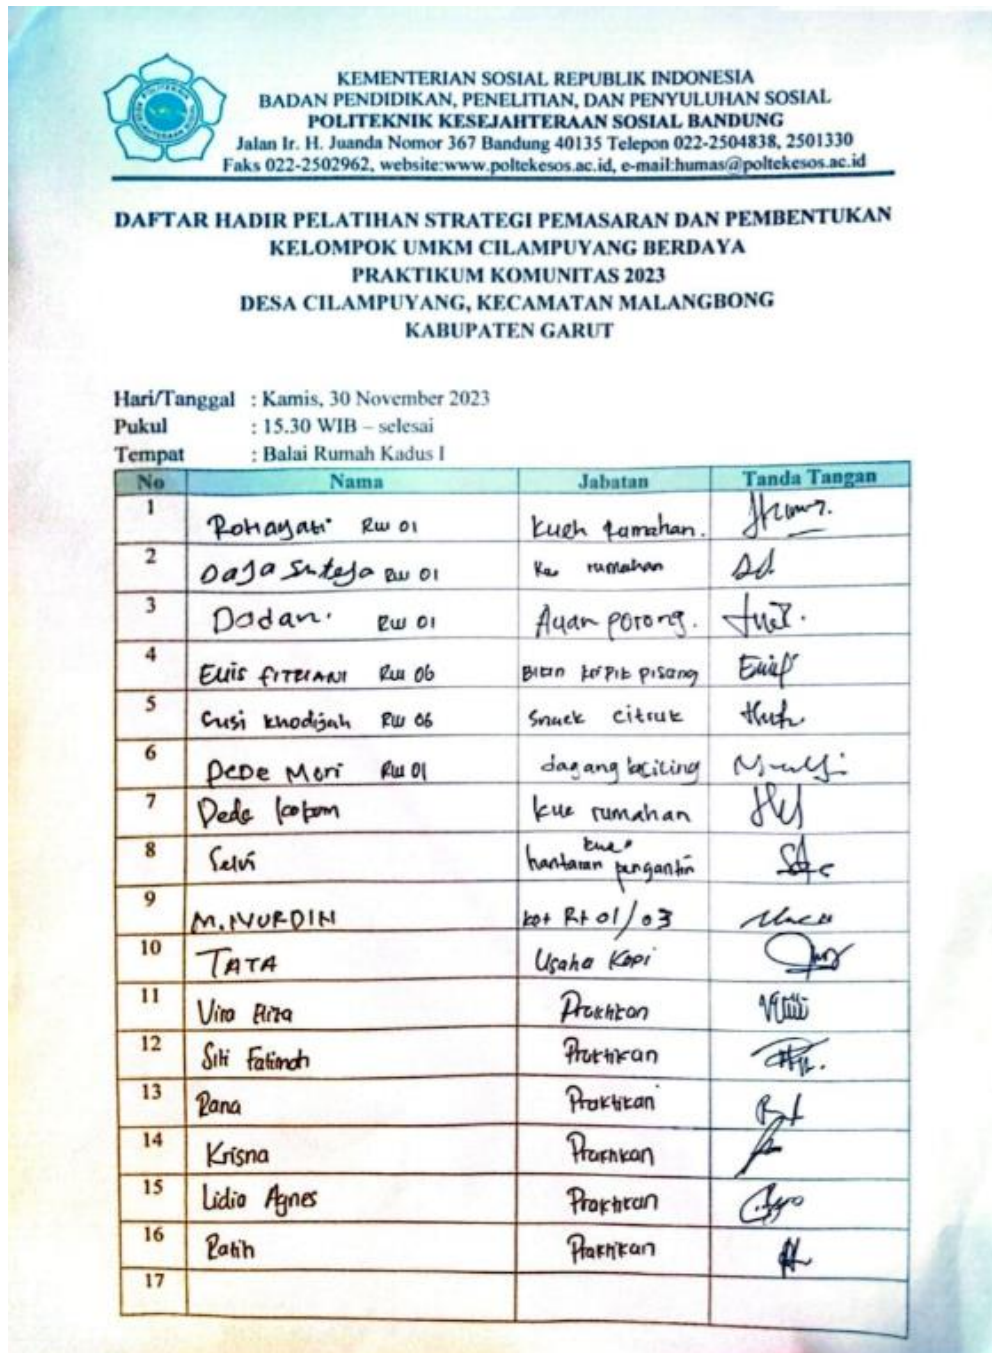 KEMENTERIAN SOSIAL REPUBLIK INDONESIA
BADAN PENDIDIKAN, PENELITIAN, DAN PENYULUHAN SOSIAL
POLITEKNIK KESEJAHTERAAN SOSIAL BANDUNG
Jalan Ir. H. Juanda Nomor 367 Bandung 40135 Telepon 022-2504838, 2501330
Faks 022-2502962, website:www.poltekesos.ac.id, e-mail:humas@poltekesos.ac.id
DAFTAR HADIR PELATIHAN STRATEGI PEMASARAN DAN PEMBENTUKAN
KELOMPOK UMKM CILAMPUYANG BERDAYA
PRAKTIKUM KOMUNITAS 2023
DESA CILAMPUYANG, KECAMATAN MALANGBONG
KABUPATEN GARUT
Hari/Tanggal : Kamis, 30 November 2023
Pukul : 15.30 WIB – selesai
Tempat : Balai Rumah Kadus I
No Nama Jabatan Tanda Tangan
1 Rohayati RW 01 kueh rumahan.
2 Daja Suteja RW 01 rumahan
3 Dadan. RW 01 Ayam potong.
4 Euis FITRIANI RW 06 Bikin keripik pisang
5 Susi khodijah RW 06 Snack citruk
6 DEDE Meri RW 01 dagang baciling
7 Dede kue rumahan
8 Selvi kue" hantaran pengantin
9 M. NURDIN ket Rt 01/03
10 TATA Usaha Kopi
11 Vira Riza Praktikan
12 Siti Fatimah Praktikan
13 Rana Praktikan
14 Krisna Praktikan
15 Lidia Agnes Praktikan
16 Ratih Praktikan
17